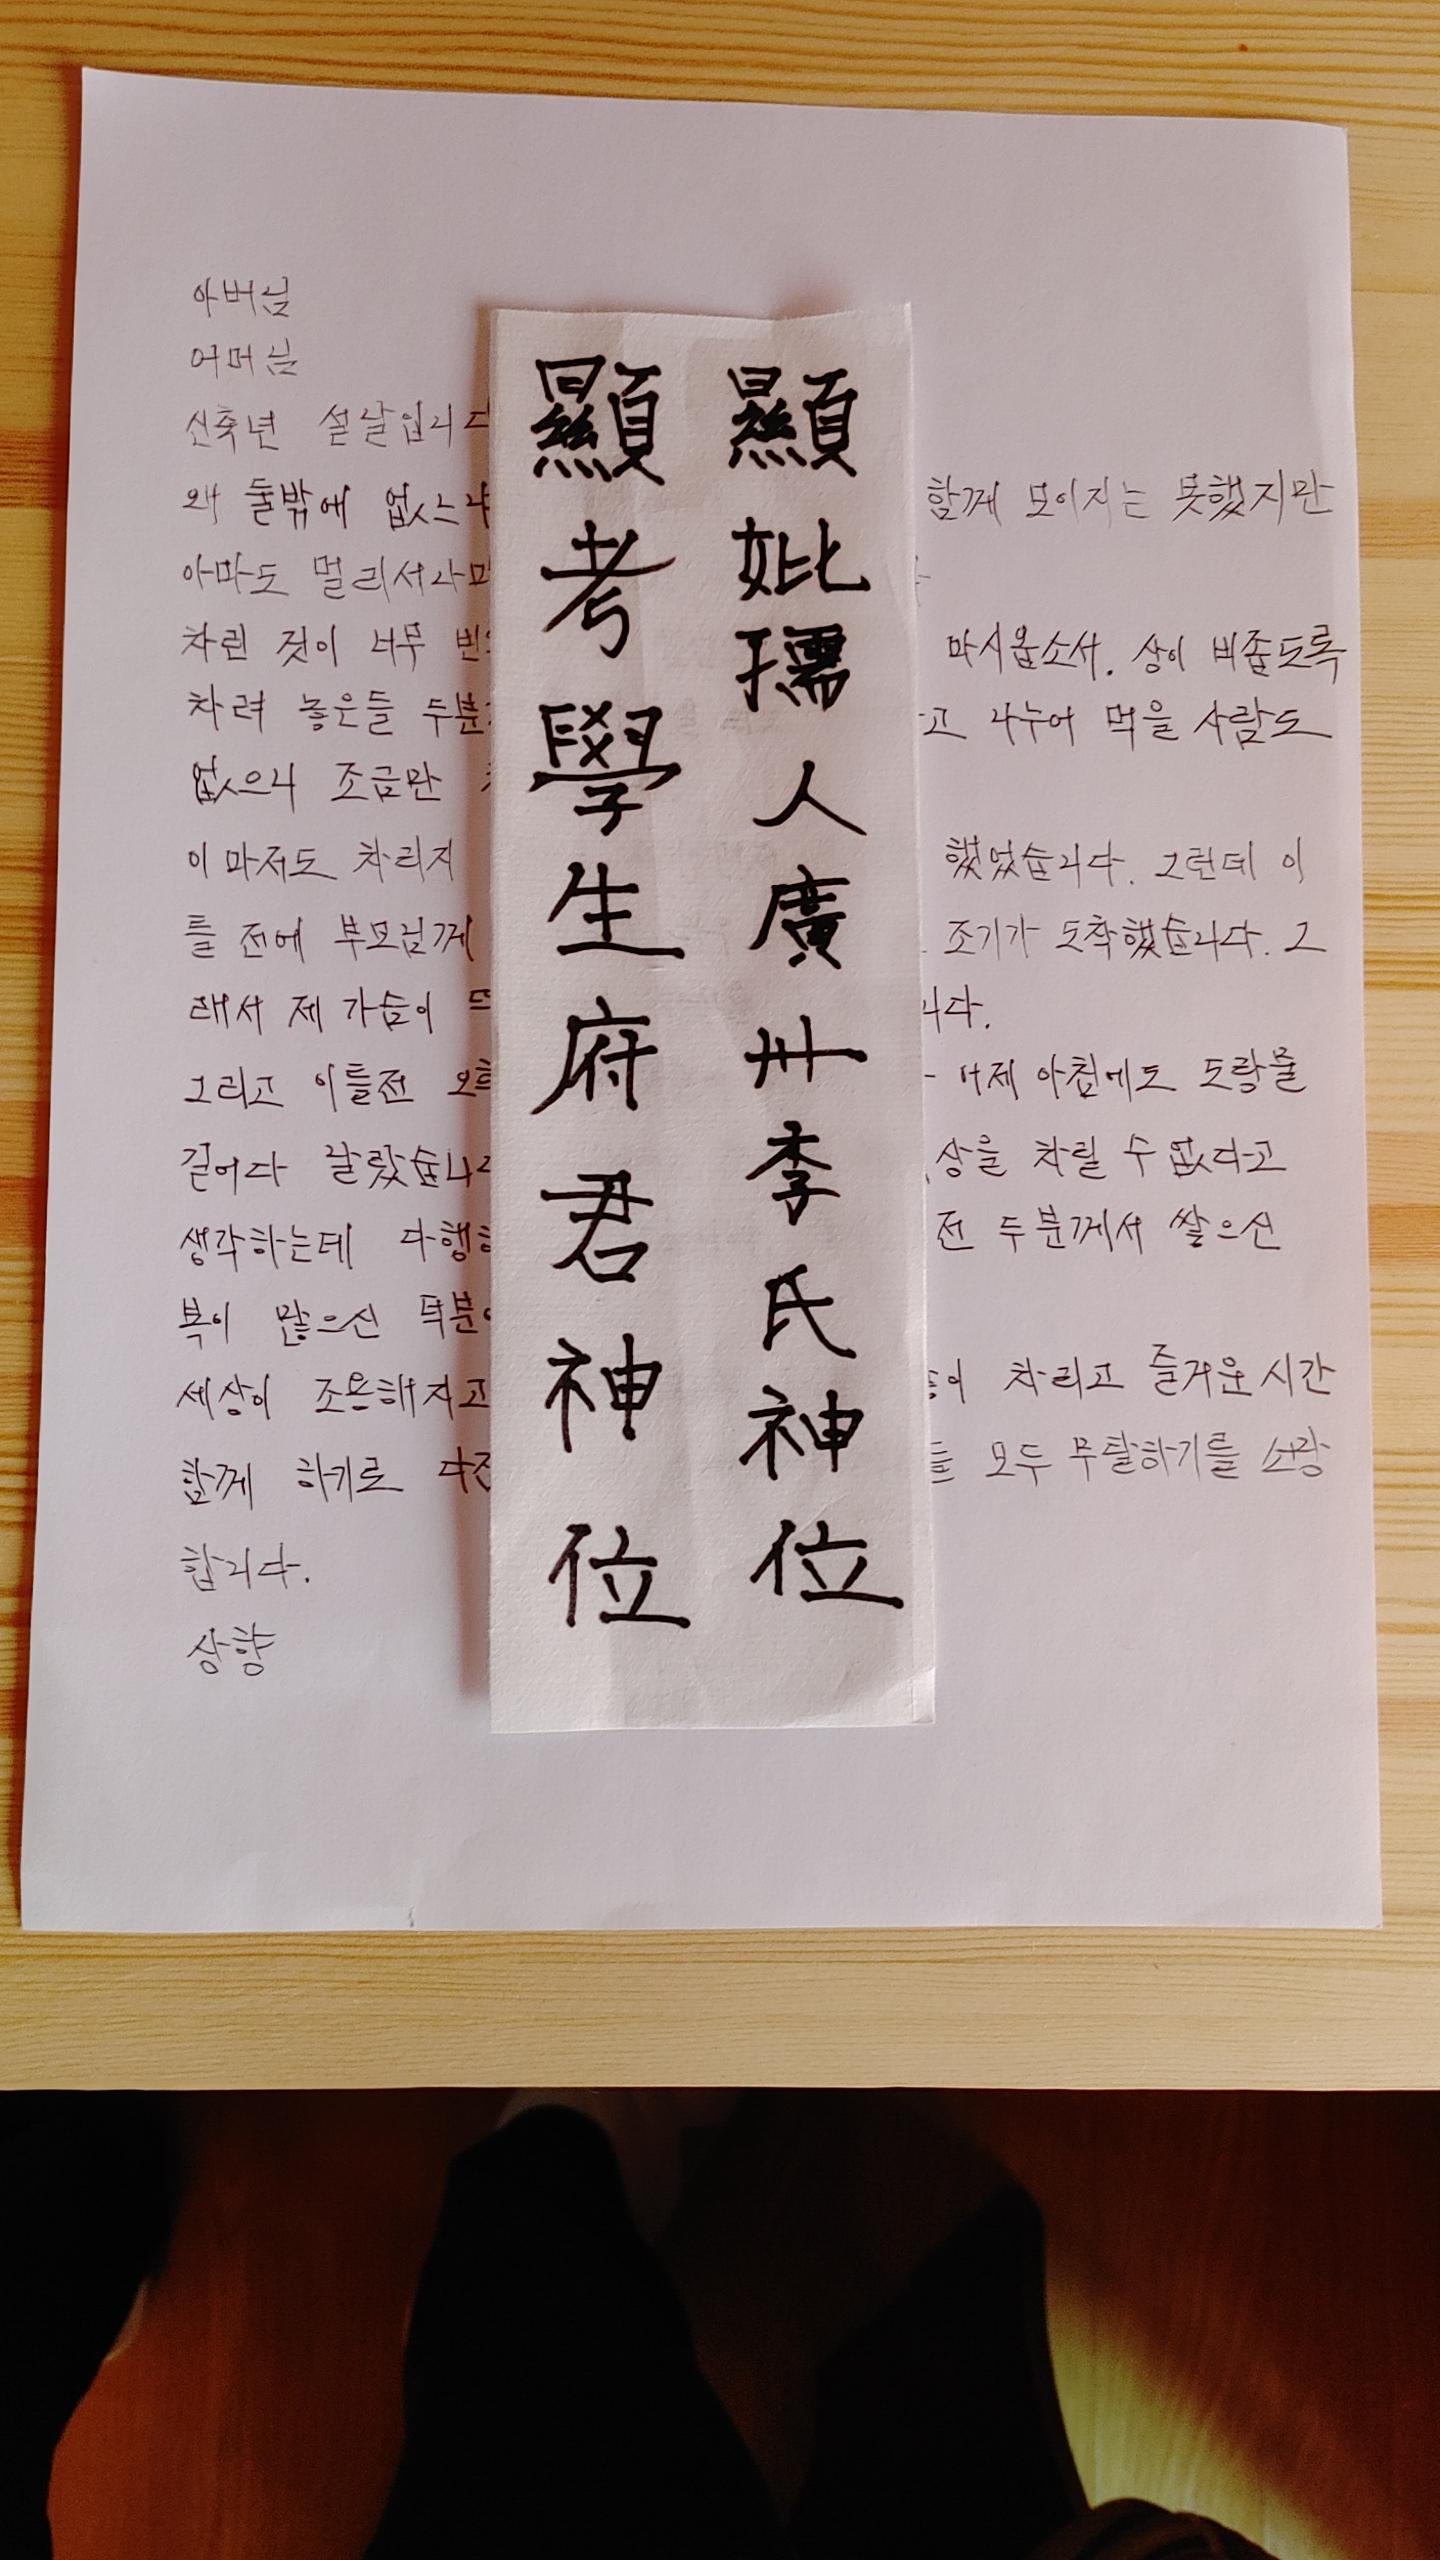 顯考學生府君神位
顯妣孺人廣州李氏神位
아버님
어머님
신축년 설날입니다
왜 둘밖에 없느냐 함께 모이지는 못했지만
아마도 멀리서나마
차린 것이 너무 마시옵소서. 상이 비좁도록
차려 놓은들 두분 나누어 먹을 사람도
없으니 조금만
이마저도 차리지 했었습니다. 그런데 이
틀 전에 부모님께 조기가 도착했습니다. 그
래서 제 가슴이 니다.
그리고 이틀전 어제 아침에도 도랑물
길어다 날랐습니다 상을 차릴 수 없다고
생각하는데 다행히 전 두분께서 쌓으신
복이 많으신 덕분
세상이 조용해지고 차리고 즐거운 시간
함께 하기로 모두 무탈하기를 소망
합니다.
상향